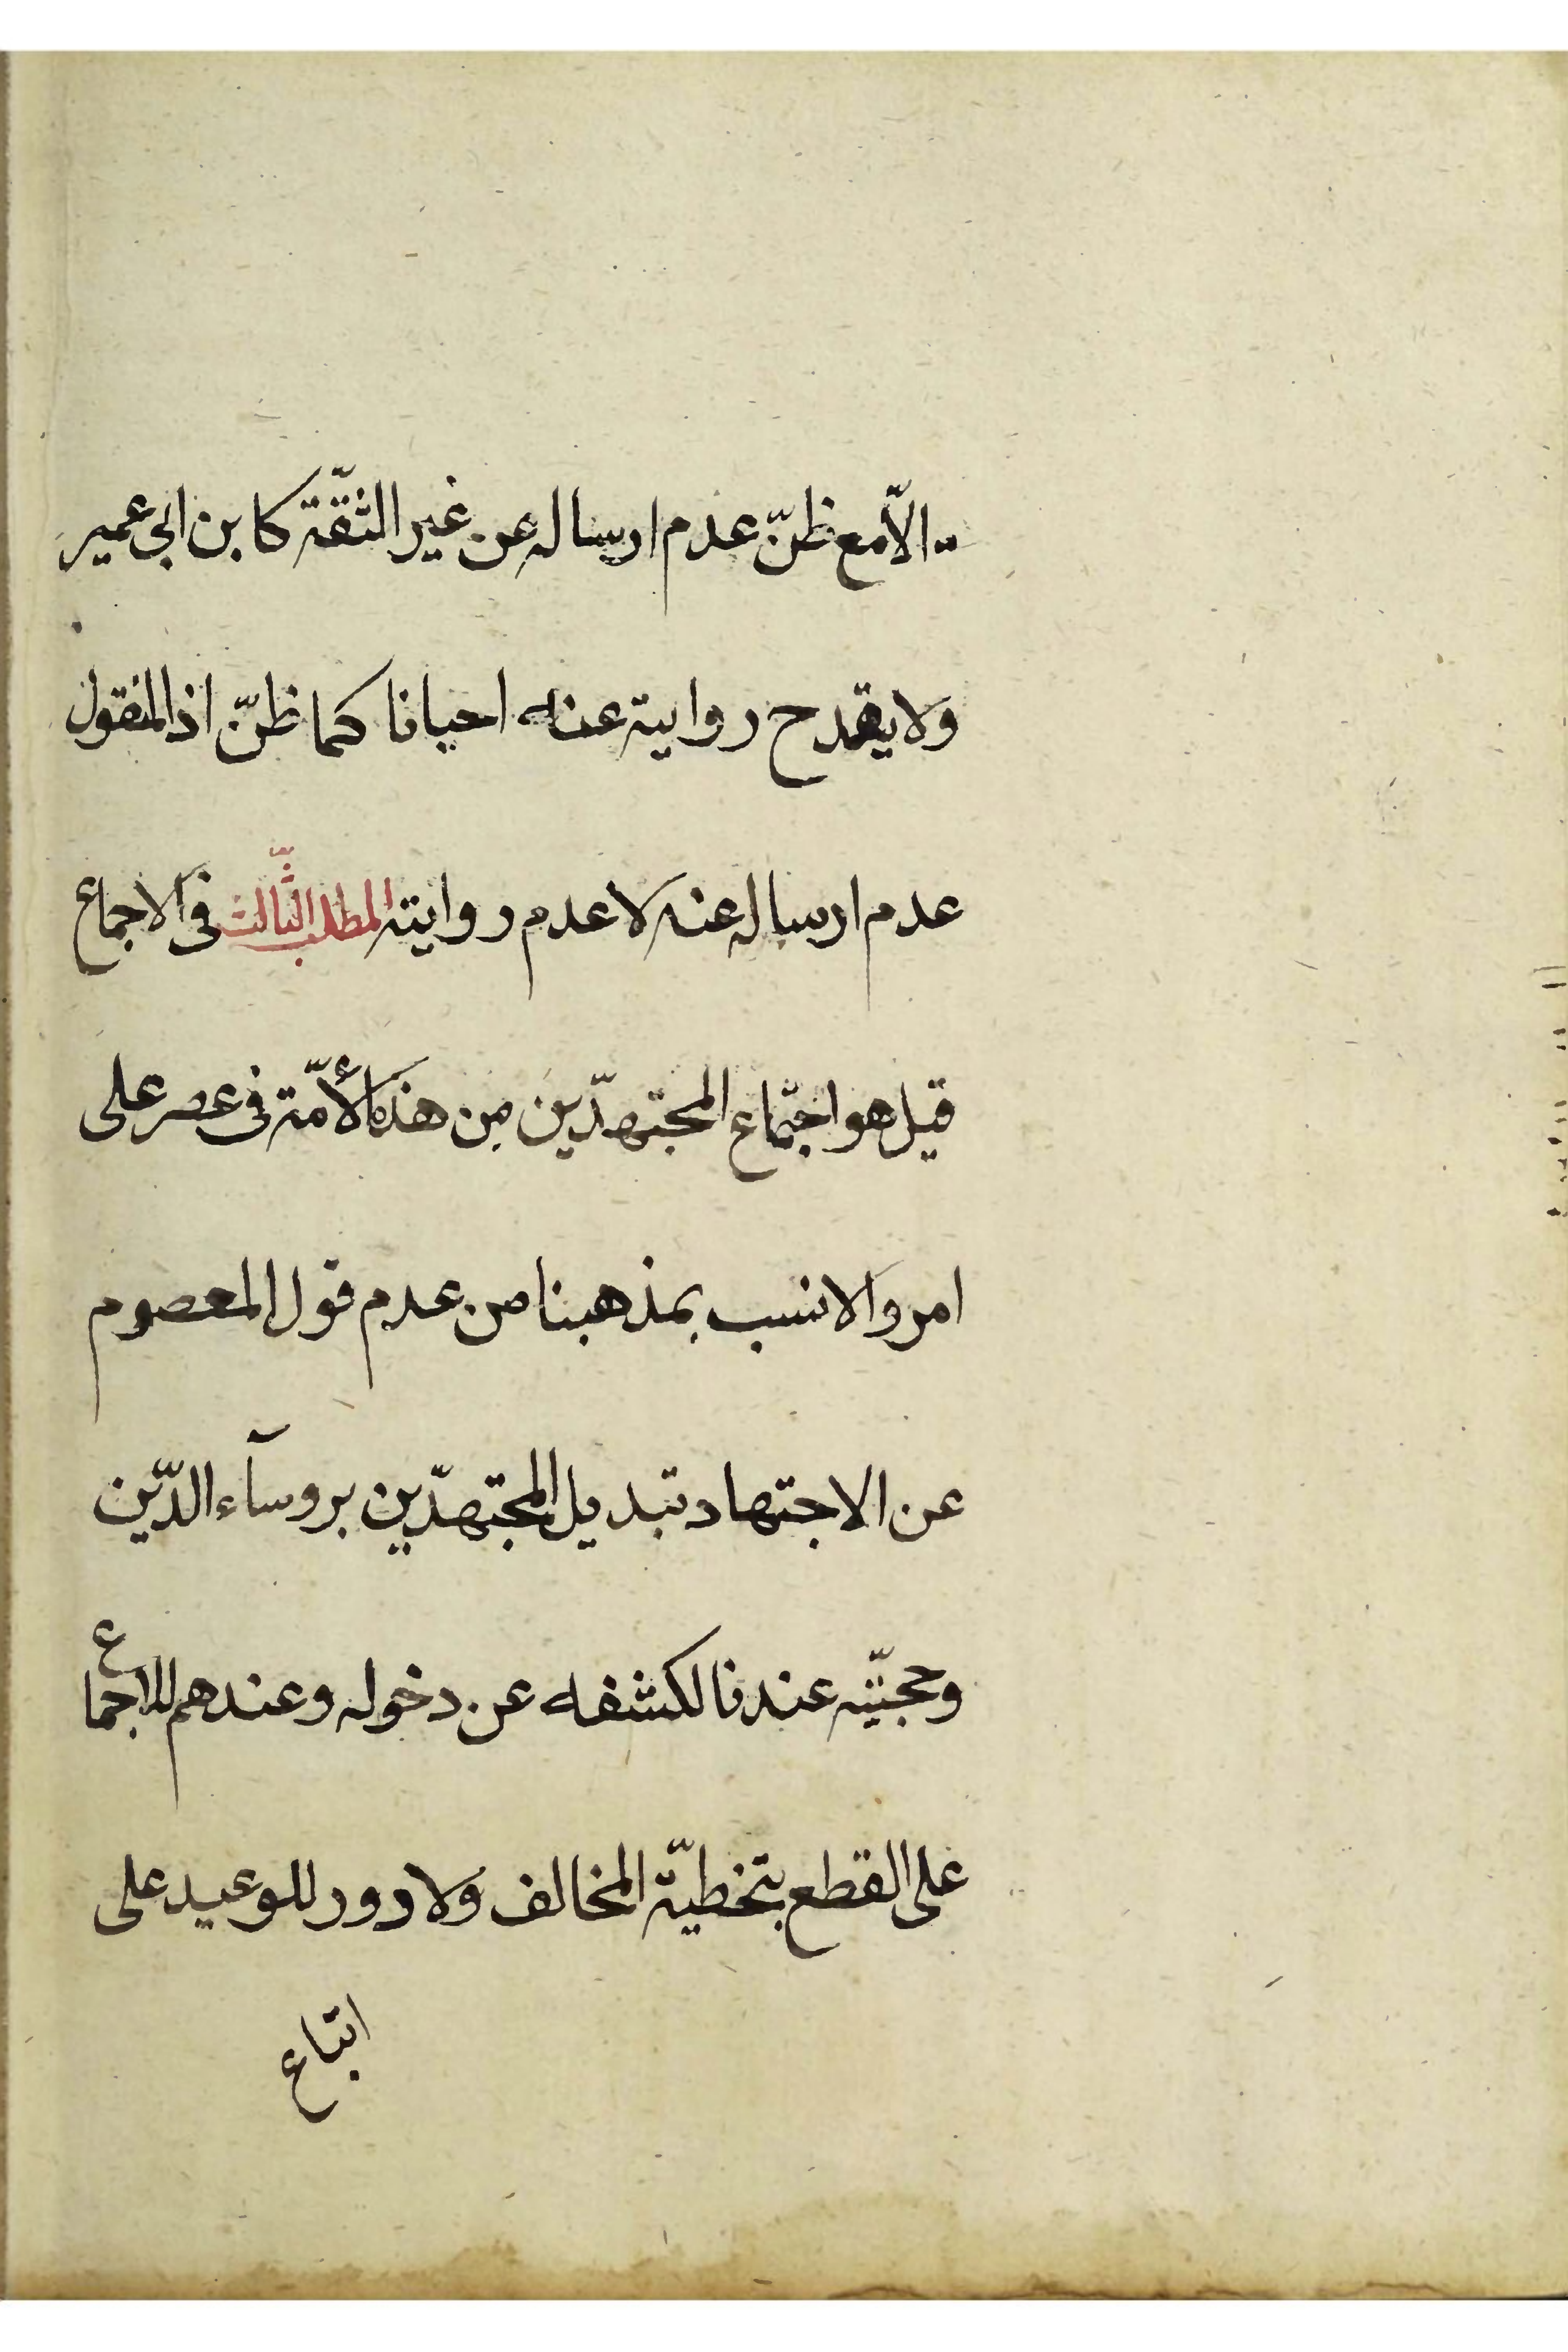 الاّ مع ظنّ عدم ارساله عن غير الثقّة كابن ابى عمير
ولا يقدح روايية عنه احيانا كما ظنّ اذ المنقول
عدم ارساله عنه لا عدم روايته المطلب الثّالث فى الاجماع
قيل هو اجتماع المجتهدّين من هذه الأمّة فى عصر على
امر والانسب بمذهبنا من عدم قول المعصوم
عن الاجتهاد تبديل المجتهدّين بروسآء الدّين
وحجيّته عندنا لكشفه عن دخوله وعندهم للاجماع
على القطع بتخطيّة المخالف ولا دور للوعيد على
اتباع